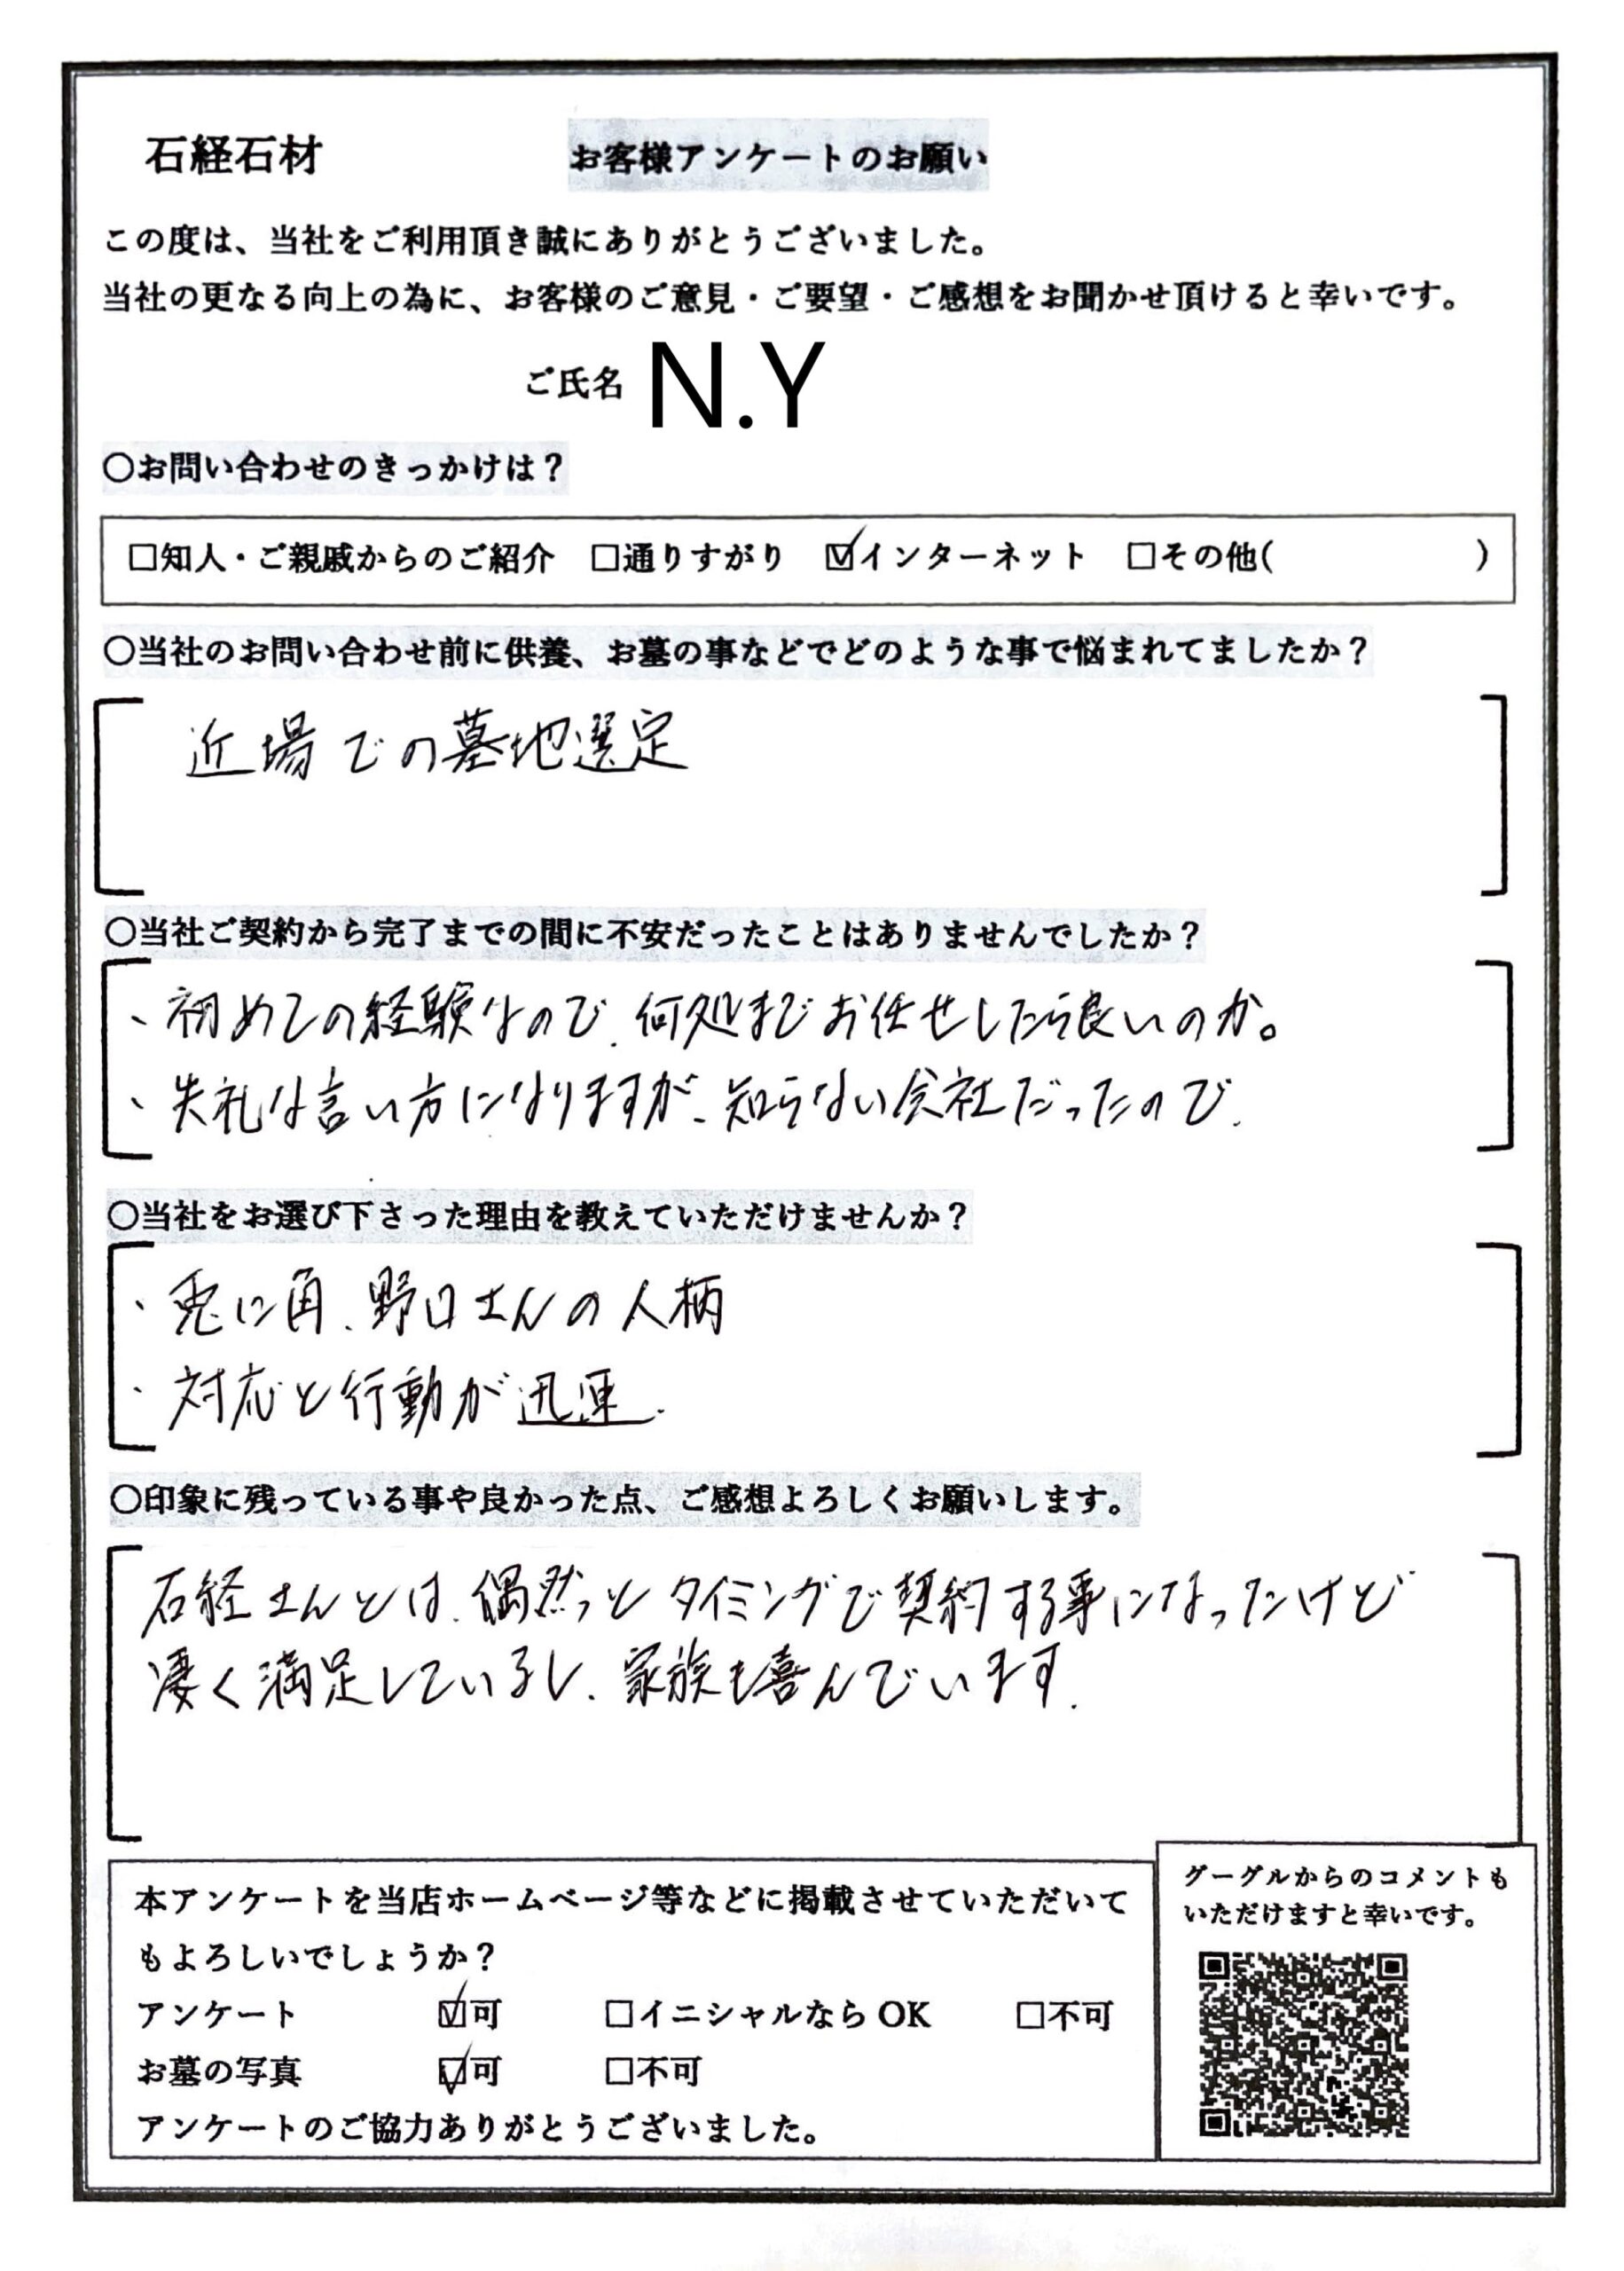 石経石材
お客様アンケートのお願い
この度は、当社をご利用頂き誠にありがとうございました。
当社の更なる向上の為に、お客様のご意見・ご要望・ご感想をお聞かせ頂けると幸いです。
ご氏名 N.Y
○お問い合わせのきっかけは？
□知人・ご親戚からのご紹介 □通りすがり ☑インターネット □その他( )
○当社のお問い合わせ前に供養、お墓の事などでどのような事で悩まれてましたか？
近場での墓地選定
○当社ご契約から完了までの間に不安だったことはありませんでしたか？
・初めての経験なので、何処までお任せしたら良いのか。
・失礼な言い方になりますが、知らない会社だったので、
○当社をお選び下さった理由を教えていただけませんか？
・兎に角、野口さんの人柄
・対応と行動が迅速.
○印象に残っている事や良かった点、ご感想よろしくお願いします。
石経さんとは、偶然っとタイミングで契約する事になったけど
凄く満足しているし、家族も喜んでいます.
本アンケートを当店ホームページ等などに掲載させていただいて
もよろしいでしょうか？
アンケート ☑可 □イニシャルなら OK □不可
お墓の写真 ☑可 □不可
アンケートのご協力ありがとうございました。
グーグルからのコメントも
いただけますと幸いです。